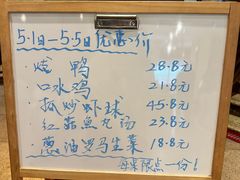 5.1日—5.5日优惠价
·烧鸭 28.8元
·口水鸡 21.8元
·椒炒虾球 45.8元
·红菇鱼丸汤 23.8元
·葱油罗马生菜 18.8元
每桌限点一份!